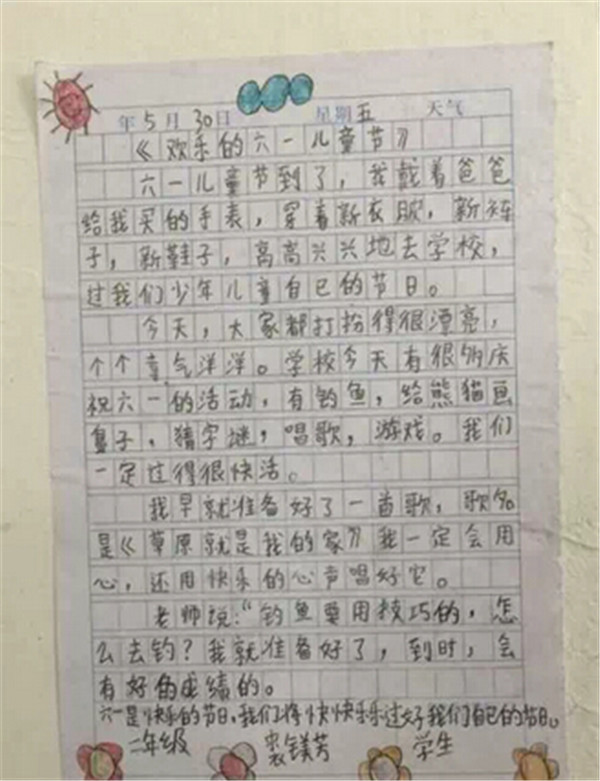 年5月30日 星期五 天气
《欢乐的六一儿童节》
六一儿童节到了，我戴着爸爸
给我买的手表，穿着新衣服，新裤
子，新鞋子，高高兴兴地去学校，
过我们少年儿童自己的节日。
今天，大家都打扮得很漂亮，
个个喜气洋洋。学校今天有很多庆
祝六一的活动，有钓鱼，给熊猫画
鼻子，猜字谜，唱歌，游戏。我们
一定过得很快活。
我早就准备好了一首歌，歌名
是《草原就是我的家》我一定会用
心，还用快乐的心声唱好它。
老师说：“钓鱼要用技巧的，怎
么去钓？我就准备好了，到时，会
有好的成绩的。
六一是快乐的节日，我们将快快乐乐过好我们自己的节日。
二年级 镁芳 学生